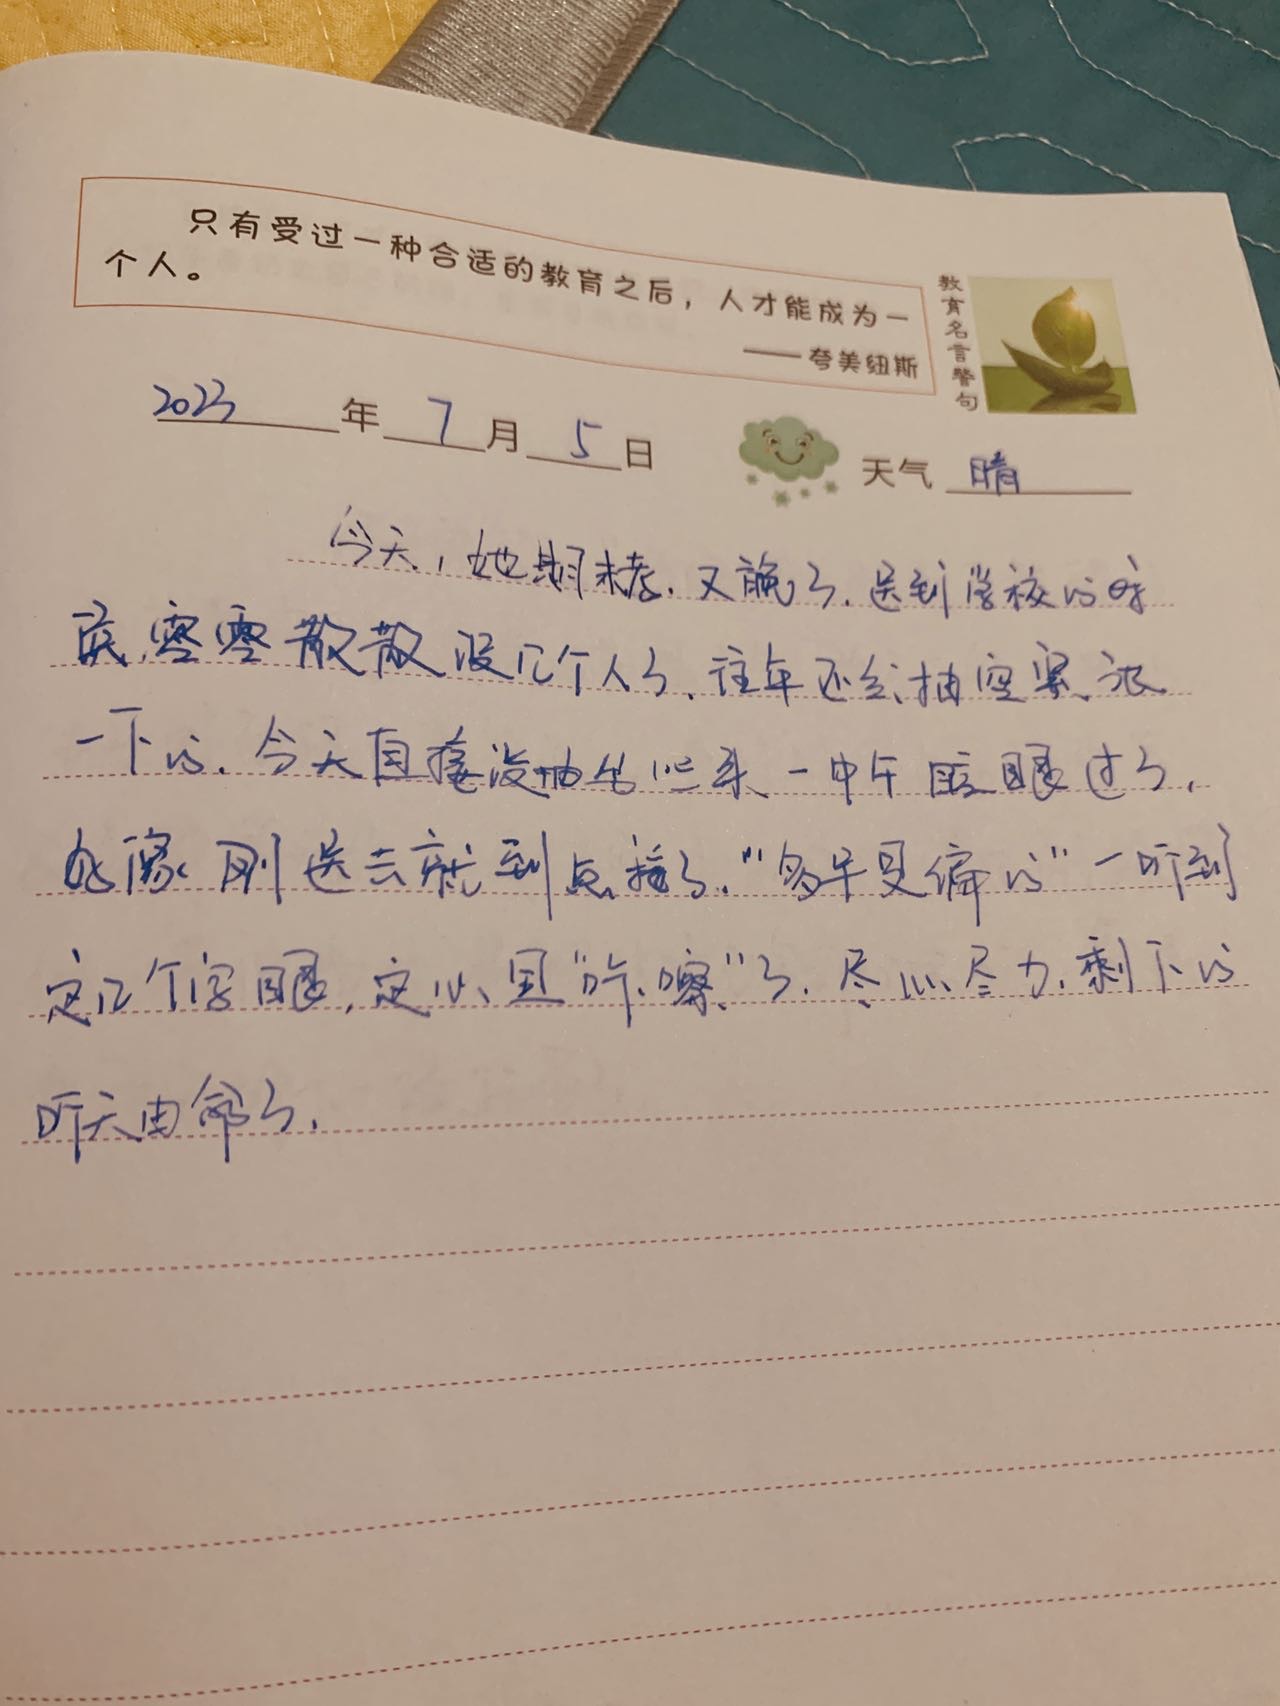 只有受过一种合适的教育之后，人才能成为一
个人。
——夸美纽斯
教育名言警句
2023年7月5日
天气 晴
今天，她期末考，又晚了，送到学校的时
候，零零散散没几个人了，往年还会抽空累说
一下的，今天直接没抽出时来，一中午眨眼过了，
好像刚送去就到点接了，“多半是偏的”一听到
这几个字眼，这心里“咔嚓”了，尽心尽力，剩下的
听天由命了，